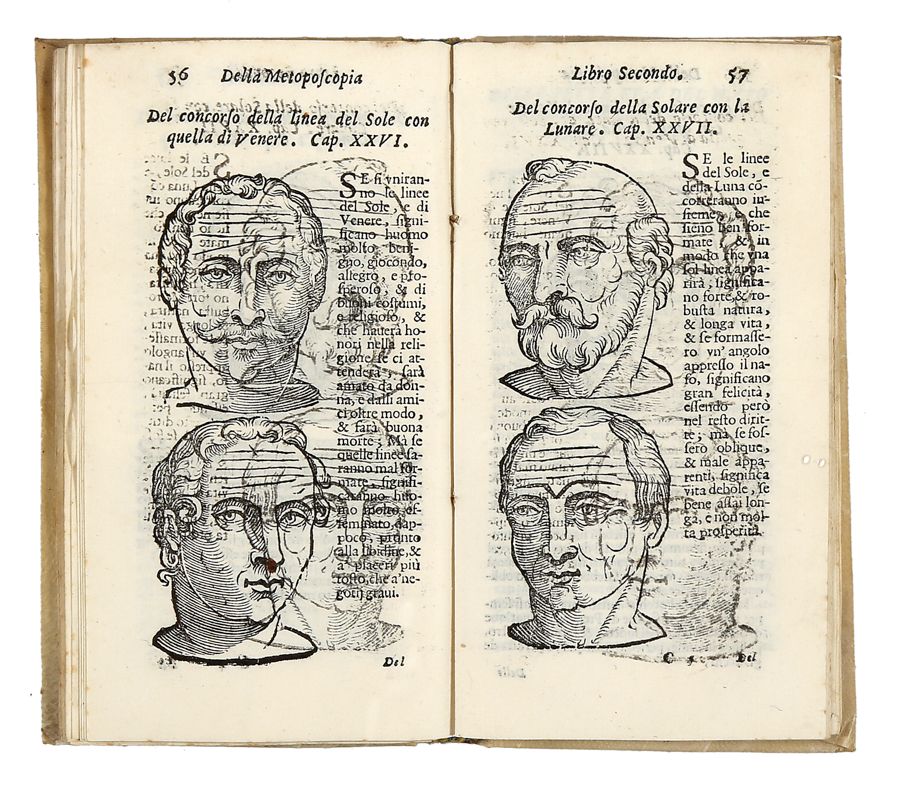 56 Della Metoposcopia
Del concorso della linea del Sole con
quella di Venere. Cap. XXVI.
SE si vniran-
no le linee
del Sole, e di
Venere, signi-
ficano huomo
molto beni-
gno, giocondo,
allegro, e pro-
speroso, & di
buoni costumi,
e religioso, &
che hauerà ho-
nori nella reli-
gione se ci at-
tenderà, sarà
amato da don-
na, e dalli ami-
ci oltre modo,
& farà buona
morte; Mà se
quelle linee sa-
ranno mal for-
mate, signifi-
caranno huo-
mo molto ef-
feminato, dap-
poco, pronto
alla libidine, &
a' piaceri più
tosto, che a' ne-
gotij graui.
Del
Libro Secondo. 57
Del concorso della Solare con la
Lunare. Cap. XXVII.
SE le linee
del Sole, e
della Luna cō-
correranno in-
sieme, e che
sieno ben for-
mate & in
modo che vna
sol linea appa-
rirà, significa-
no forte, & ro-
busta natura,
& longa vita,
& se formasse-
ro vn' angolo
appresso il na-
so, significano
gran felicità,
essendo però
nel resto dirit-
te; ma se fos-
sero oblique,
& male appa-
renti, significa
vita debole, se
bene assai lon-
ga, e non mol-
ta prosperità.
C 5 Del